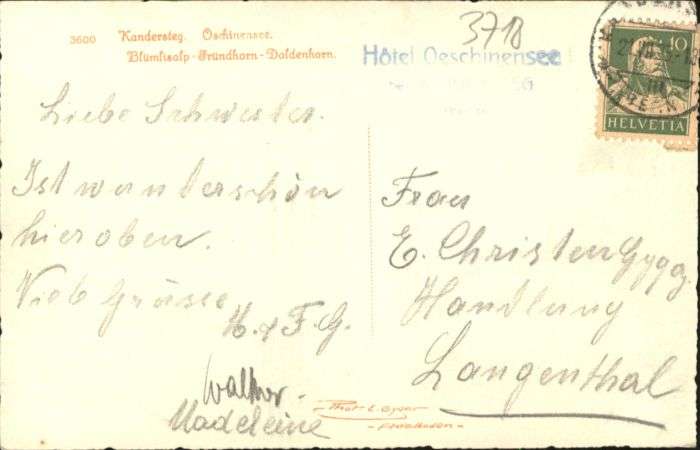 3600 Kandersteg. Oschinensee.
Blümlisalp-Fründhorn-Doldenhorn.
3718
Hôtel Oeschinensee
10
HELVETIA
Liebe Schwester.
Ist wunterschön
hier oben.
Viele Grüsse
H. & F. G.
Walter.
Madeleine
Frau
E. Christen Gygax
Handlung
Langenthal
Phot. E. Gyger
- Adelboden -